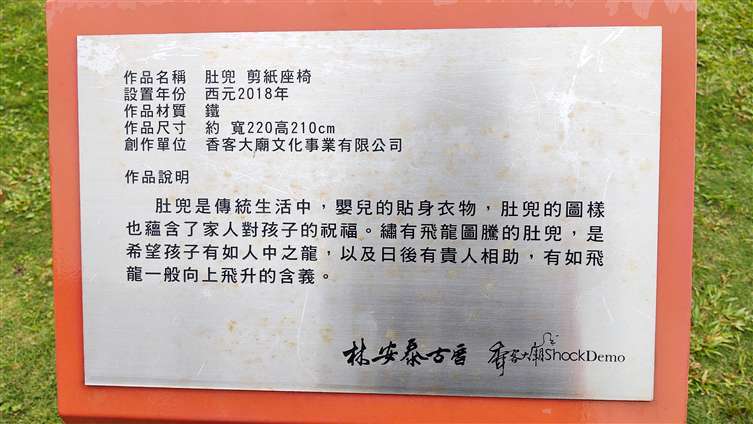 作品名稱 肚兜 剪紙座椅
設置年份 西元2018年
作品材質 鐵
作品尺寸 約 寬220高210cm
創作單位 香客大廟文化事業有限公司
作品說明
肚兜是傳統生活中，嬰兒的貼身衣物，肚兜的圖樣
也蘊含了家人對孩子的祝福。繡有飛龍圖騰的肚兜，是
希望孩子有如人中之龍，以及日後有貴人相助，有如飛
龍一般向上飛升的含義。
林安泰古厝 香客大廟ShockDemo